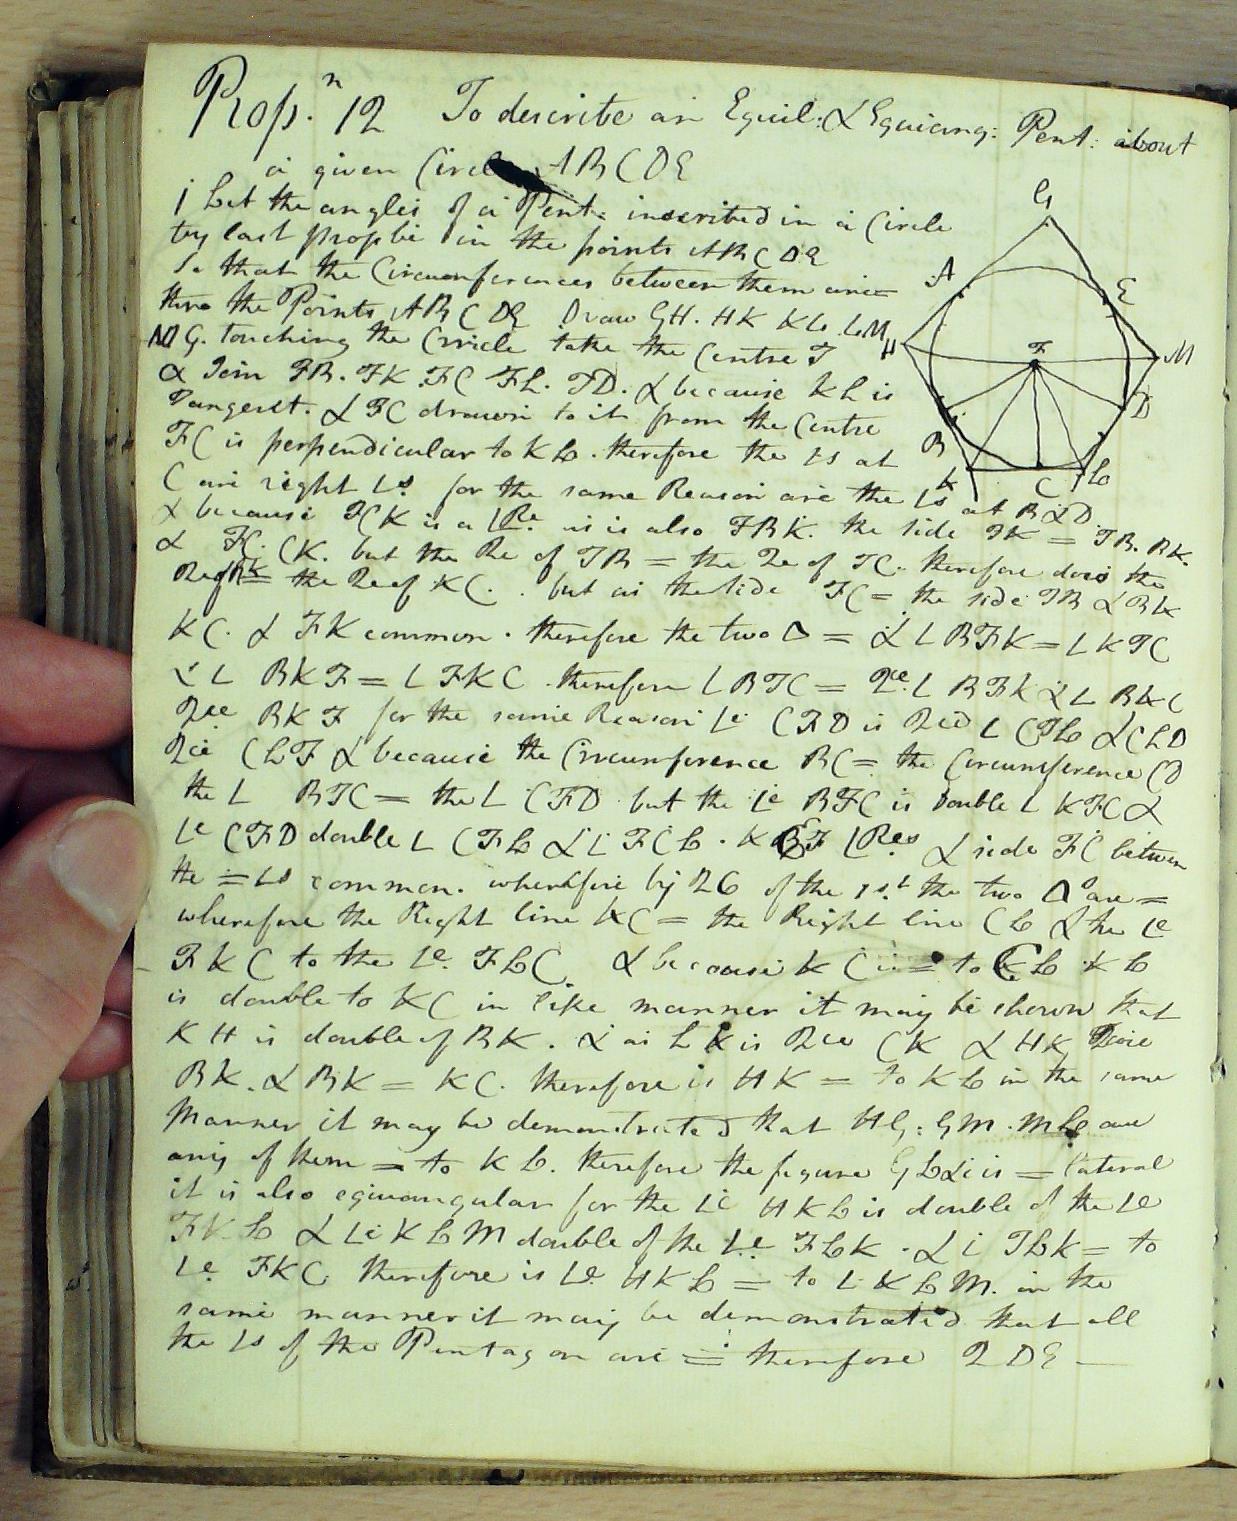 Prop.n 12 To describe an Equil: & Equiang: Pent: about
a given Circle ABCDE
1 Let the angles of a Pent: inscribed in a Circle
by last prop be in the points ABCDE
So that the Circumferences between them are =
thro the Points ABCDE Draw GH. HK KL. LM
MG. touching the Circle take the Centre F
& Join FB. FK. FC FL. FD. & because KL is
Tangent. & FC drawn to it from the Centre
FC is perpendicular to KL. therefore the Ls at
C are right Ls. for the same Reason are the Ls at B & D
& because FCK is a LRe. as is also FBK. the side FK = FB. BK.
& FC. CK. but the Re of FB = the Re of FC. therefore does the
Re of BK = the Re of KC. but as the side FC = the side FB & BK
KC. & FK common. therefore the two ∆ = & L BFK = L KFC
& L BKF = L FKC therefore L BFC = 2ce. L BFK & L BKC
2ce BKF for the same Reason Le CFD is 2ce L CFL & CLD
2ce CLF & because the Circumference BC = the Circumference CD
the L BFC = the L CFD but the Le BFC is Double L KFC &
Le CFD double L CFL & L FCL. KCF LRes & side FC between
the = Ls common. wherefore by 26 of the 1st the two ∆s are =
wherefore the Right line KC = the Right line CL & the Le
FKC to the Le. FLC & because KC is = to CL KL
is double to KC in like manner it may be shown that
KH is double of BK. & as LK is 2ce CK & HK Twice
BK. & BK = KC. therefore is HK = to KL in the same
Manner it may be demonstrated that HG: GM. ML are
any of them = to KL. therefore the figure GL&c is = lateral
it is also equiangular for the Le HKL is double of the Le
FKL & Le KLM double of the Le FLK. & L FLK = to
Le. FKC therefore is Le HKL = to L KLM. in the
same manner it may be demonstrated that all
the Ls of the Pentagon are = therefore QDE
G
A
E
H
F
M
B
D
K
C
L